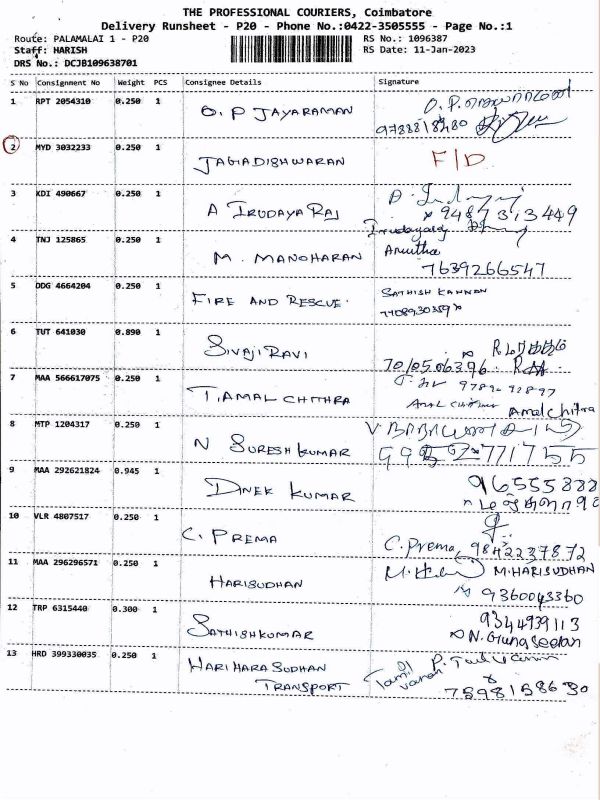 THE PROFESSIONAL COURIERS, Coimbatore
Delivery Runsheet - P20 - Phone No.:0422-3505555 - Page No.:1
Route: PALAMALAI 1 - P20
RS No.: 1096387
Staff: HARISH
RS Date: 11-Jan-2023
DRS No.: DCJB109638701
S No Consignment No Weight PCS Consignee Details Signature
1 RPT 2054310 0.250 1 O. P JAYARAMAN
2 MYD 3032233 0.250 1 JAGADISHWARAN F/D
3 KDI 490667 0.250 1 A IRUDAYA RAJ
9487313449
4 TNJ 125865 0.250 1 M. MANOHARAN Amutha
7639266547
5 DDG 4664204 0.250 1 FIRE AND RESCUE. SATHISH KANNAN
6 TUT 641030 0.890 1 SIVAJI RAVI
7 MAA 566617075 0.250 1 T. AMAL CHITHRA
Amal chitra
8 MTP 1204317 0.250 1 N SURESH KUMAR
9 MAA 292621824 0.945 1 DINEK KUMAR
96555888
10 VLR 4807517 0.250 1 C. PREMA
C. Prema, 9842237872
11 MAA 296296571 0.250 1 HARISUDHAN M.HARISUDHAN
9360043360
12 TRP 6315440 0.300 1 SATHISHKUMAR 9344939113
13 HRD 399330035 0.250 1 HARI HARA SUDHAN
TRANSPORT